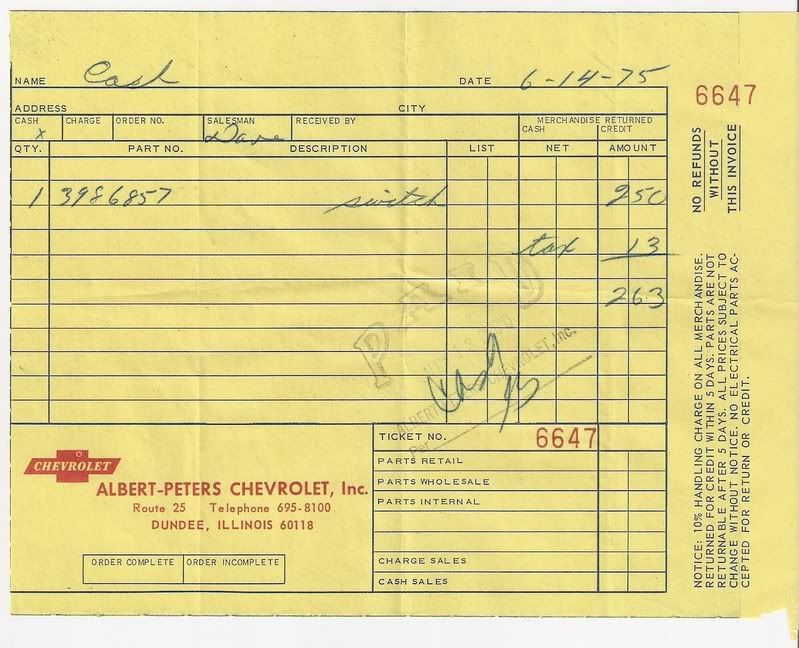 NAME Cash DATE 6-14-75
6647
ADDRESS CITY
CASH X CHARGE ORDER NO. SALESMAN Dave RECEIVED BY MERCHANDISE RETURNED CASH CREDIT
QTY. PART NO. DESCRIPTION LIST NET AMOUNT
1 3986857 switch 250
tax 13
263
PAID
ALBERT-PETERS CHEVROLET, Inc.
Per
Cash
TICKET NO. 6647
PARTS RETAIL
PARTS WHOLESALE
PARTS INTERNAL
CHARGE SALES
CASH SALES
CHEVROLET
ALBERT-PETERS CHEVROLET, Inc.
Route 25 Telephone 695-8100
DUNDEE, ILLINOIS 60118
ORDER COMPLETE ORDER INCOMPLETE
NO REFUNDS
WITHOUT
THIS INVOICE
NOTICE: 10% HANDLING CHARGE ON ALL MERCHANDISE.
RETURNED FOR CREDIT WITHIN 5 DAYS. PARTS ARE NOT
RETURNABLE AFTER 5 DAYS. ALL PRICES SUBJECT TO
CHANGE WITHOUT NOTICE. NO ELECTRICAL PARTS AC-
CEPTED FOR RETURN OR CREDIT.